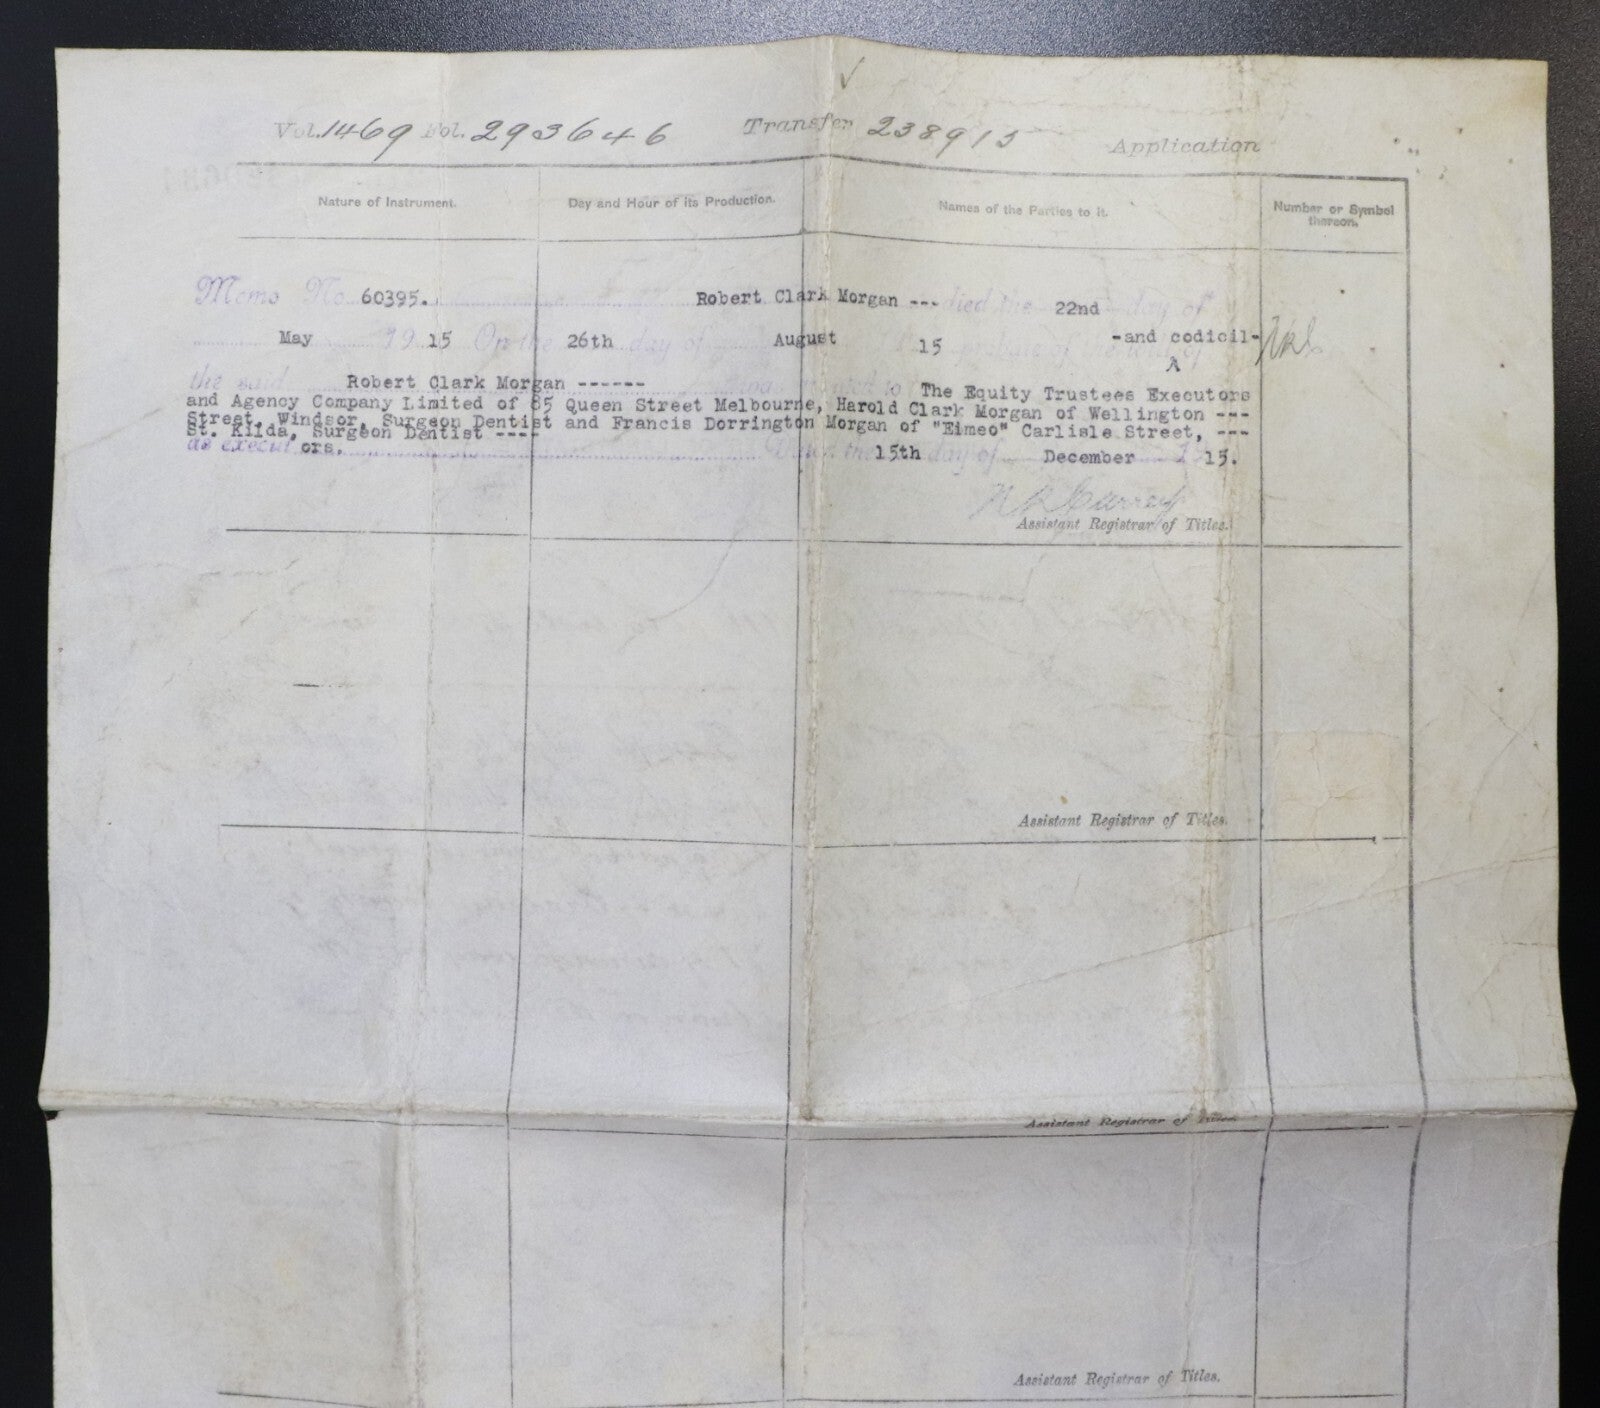 Vol. 1469 Fol. 293646 Transfer 238915 Application
Nature of Instrument. Day and Hour of its Production. Names of the Parties to it. Number or Symbol thereon.
Memo No. 60395. Robert Clark Morgan --- died the 22nd day of
May 1915 On the 26th day of August 15 probate of the will -and codicil- of
the said Robert Clark Morgan ------ was granted to The Equity Trustees Executors
and Agency Company Limited of 85 Queen Street Melbourne, Harold Clark Morgan of Wellington ---
Street, Windsor, Surgeon Dentist and Francis Dorrington Morgan of "Eimeo" Carlisle Street, ---
St. Kilda, Surgeon Dentist ----
as executors. the 15th day of December 15.
Assistant Registrar of Titles.
Assistant Registrar of Titles.
Assistant Registrar of Titles.
Assistant Registrar of Titles.